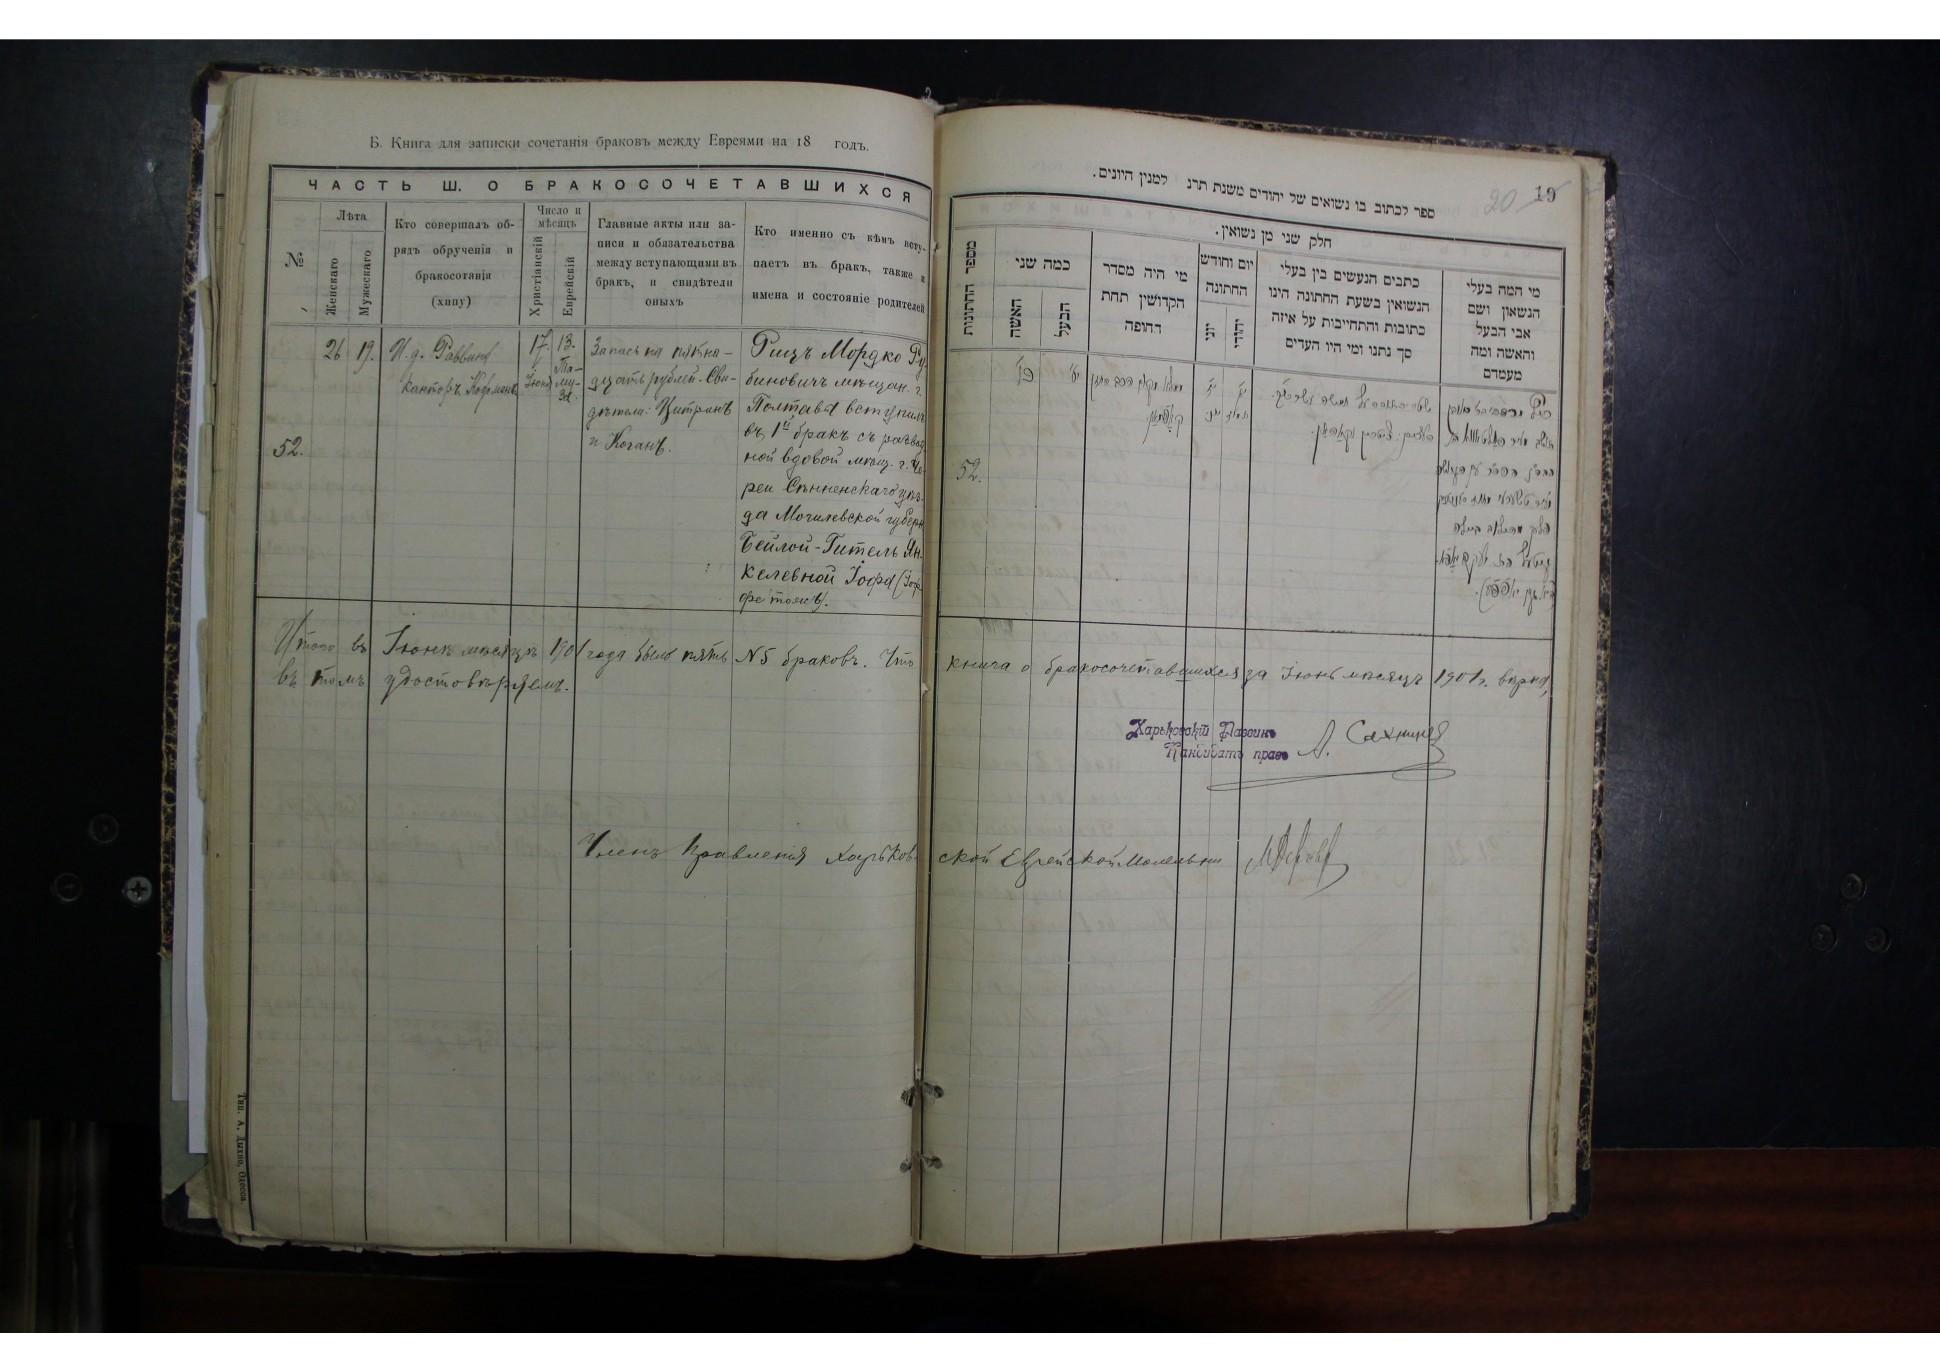 Б. Книга для записки сочетанія браковъ между Евреями на 18 годъ.
ЧАСТЬ Ш. О БРАКОСОЧЕТАВШИХСЯ
№
Лѣта
Женскаго
Мужескаго
Кто совершалъ об-
рядъ обрученія и
бракосотанія
(хипу)
Число и
мѣсяцъ
Христіанскій
Еврейскій
Главные акты или за-
писи и обязательства
между вступающими въ
бракъ, и свидѣтели
оныхъ
Кто именно съ кѣмъ всту-
паетъ въ бракъ, также и
имена и состояніе родителей
52.
26
19.
И. д. Раввина
канторъ
17.
Іюня
13.
Та-
му-
за.
Запись на пятна-
дцать рублей. Сви-
дѣтели: Цитринъ
и Коганъ.
Рицъ Мордко Ру-
биновичъ мѣщан. г.
Полтавы вступилъ
въ 1й бракъ съ развод
ной вдовой мѣщ. г. Че-
реи Сѣнненскаго уѣз-
да Могилевской губерн
Бейлой-Гитель Ян-
келевной Іофа (Іоф
фе тожъ).
Итого въ Іюнѣ мѣсяцѣ 1901 года было пять №5 браковъ. Что
въ томъ удостовѣряемъ.
Членъ Правленія Харьков-
Тип. А. Дыхно, Одесса.
20
19
ספר לכתוב בו נשואים של יהודים משנת תרנ למנין היונים.
חלק שני מן נשואין.
מספר החתונות
כמה שני
האשה
הבעל
מי היה מסדר
הקדושין תחת
החופה
יום וחודש
החתונה
יוני
יהודי
כתבים הנעשים בין בעלי
הנשואין בשעת החתונה הינו
כתובות והתחייבות על איזה
סך נתנו ומי היו העדים
מי המה בעלי
הנשאון ושם
אבי הבעל
והאשה ומה
מעמדם
52.
книга о бракосочетавшихся за Іюнь мѣсяцъ 1901 г. вѣрна,
Харьковскій Раввинъ
Кандидатъ правъ
А. Сахнинъ
ской Еврейской Молельни